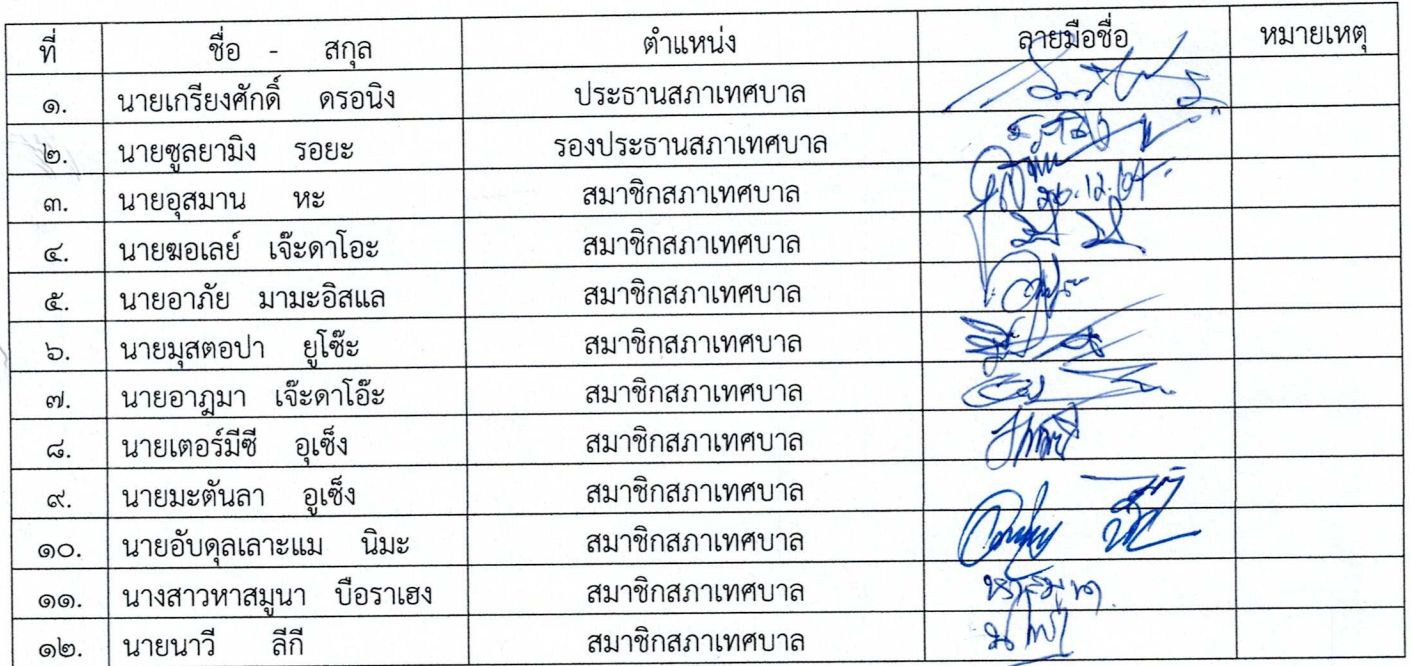 ที่ ชื่อ - สกุล ตำแหน่ง ลายมือชื่อ หมายเหตุ
๑. นายเกรียงศักดิ์ ดรอนิง ประธานสภาเทศบาล
๒. นายซูลยามิง รอยะ รองประธานสภาเทศบาล
๓. นายอุสมาน หะ สมาชิกสภาเทศบาล
๔. นายฆอเลย์ เจ๊ะดาโอะ สมาชิกสภาเทศบาล
๕. นายอาภัย มามะอิสแล สมาชิกสภาเทศบาล
๖. นายมุสตอปา ยูโซ๊ะ สมาชิกสภาเทศบาล
๗. นายอาฎมา เจ๊ะดาโอ๊ะ สมาชิกสภาเทศบาล
๘. นายเตอร์มีซี อุเซ็ง สมาชิกสภาเทศบาล
๙. นายมะตันลา อูเซ็ง สมาชิกสภาเทศบาล
๑๐. นายอับดุลเลาะแม นิมะ สมาชิกสภาเทศบาล
๑๑. นางสาวหาสมูนา บือราเฮง สมาชิกสภาเทศบาล
๑๒. นายนาวี ลีกี สมาชิกสภาเทศบาล